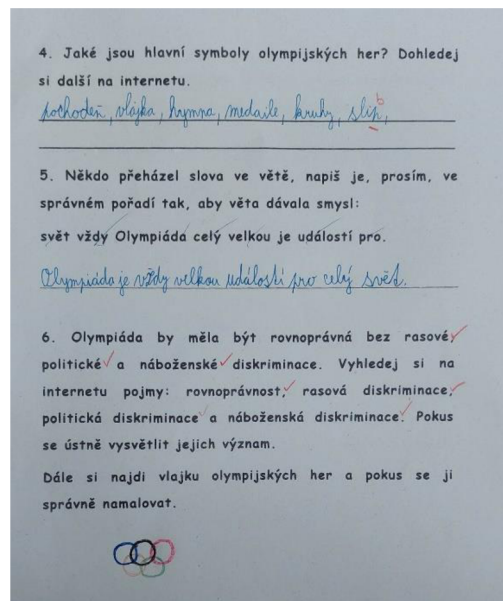 4. Jaké jsou hlavní symboly olympijských her? Dohledej
si další na internetu.
pochodeň, vlajka, hymna, medaile, kruhy, slip,
b
5. Někdo přeházel slova ve větě, napiš je, prosím, ve
správném pořadí tak, aby věta dávala smysl:
svět vždy Olympiáda celý velkou je událostí pro.
Olympiáda je vždy velkou událostí pro celý svět.
6. Olympiáda by měla být rovnoprávná bez rasové,
politické a náboženské diskriminace. Vyhledej si na
internetu pojmy: rovnoprávnost, rasová diskriminace,
politická diskriminace a náboženská diskriminace. Pokus
se ústně vysvětlit jejich význam.
Dále si najdi vlajku olympijských her a pokus se ji
správně namalovat.